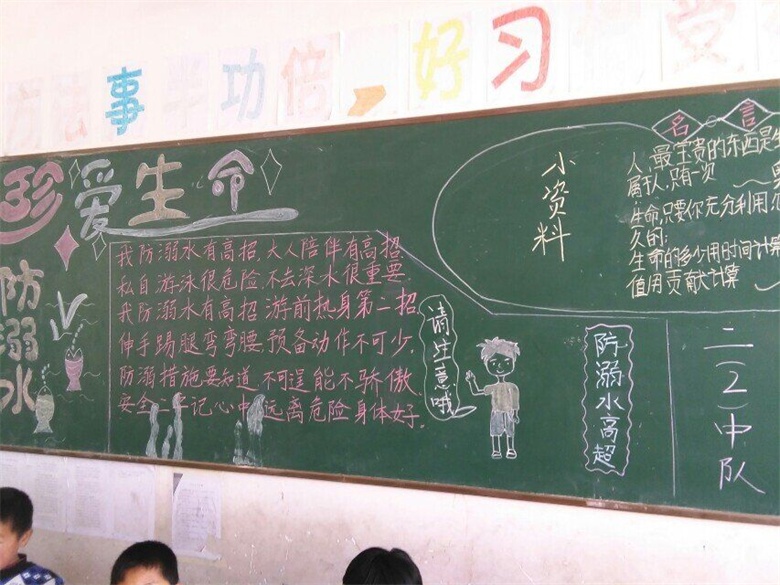 方法事半功倍
好习
受
珍爱生命
防溺水
我防溺水有高招,大人陪伴有高招
私自游泳很危险,不去深水很重要
我防溺水有高招,游前热身第二招
伸手踢腿弯弯腰,预备动作不可少,
防溺措施要知道,不可逞能不骄傲,
安全二字记心中,远离危险身体好,
请注意哦
小资料
名言
人,最宝贵的东西是
属于人,只有一次
生命,只要你充分利用,
久的;
生命的多少用时间计算
值用贡献计算
防溺水高超
二(2)中队